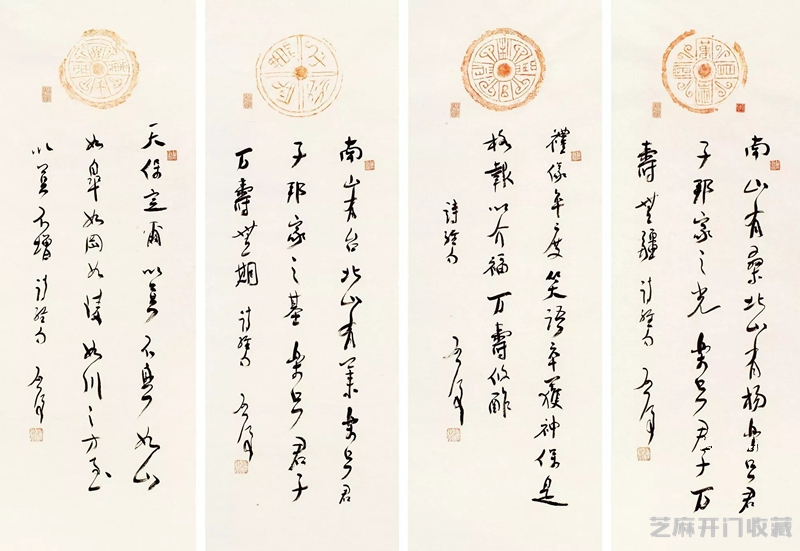 南山有桑北山有楊樂只君
子邦家之光樂只君子万
壽無疆 詩經句
禮儀卒度笑語卒獲神保是
格報以介福万壽攸酢
詩經句
南山有台北山有萊樂只君
子邦家之基樂只君子
万壽無期 詩經句
天保定爾以莫不興如山
如阜如岡如陵如川之方至
以莫不增 詩經句
芝麻开门收藏